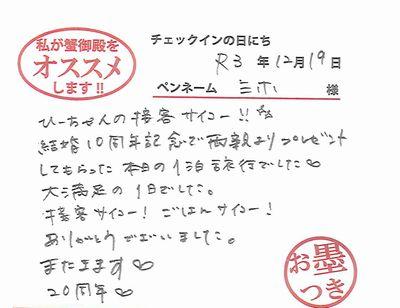 私が蟹御殿を
オススメ
します!!
チェックインの日にち
R3年12月19日
ペンネーム ミホ 様
ひーちゃんの接客サイコー!!
結婚10周年記念で両親よりプレゼント
してもらった本日の1泊旅行でした♡
大満足の1日でした。
接客サイコー! ごはんサイコー!
ありがとうございました。
またきます♡
20周年♡
お墨
つき